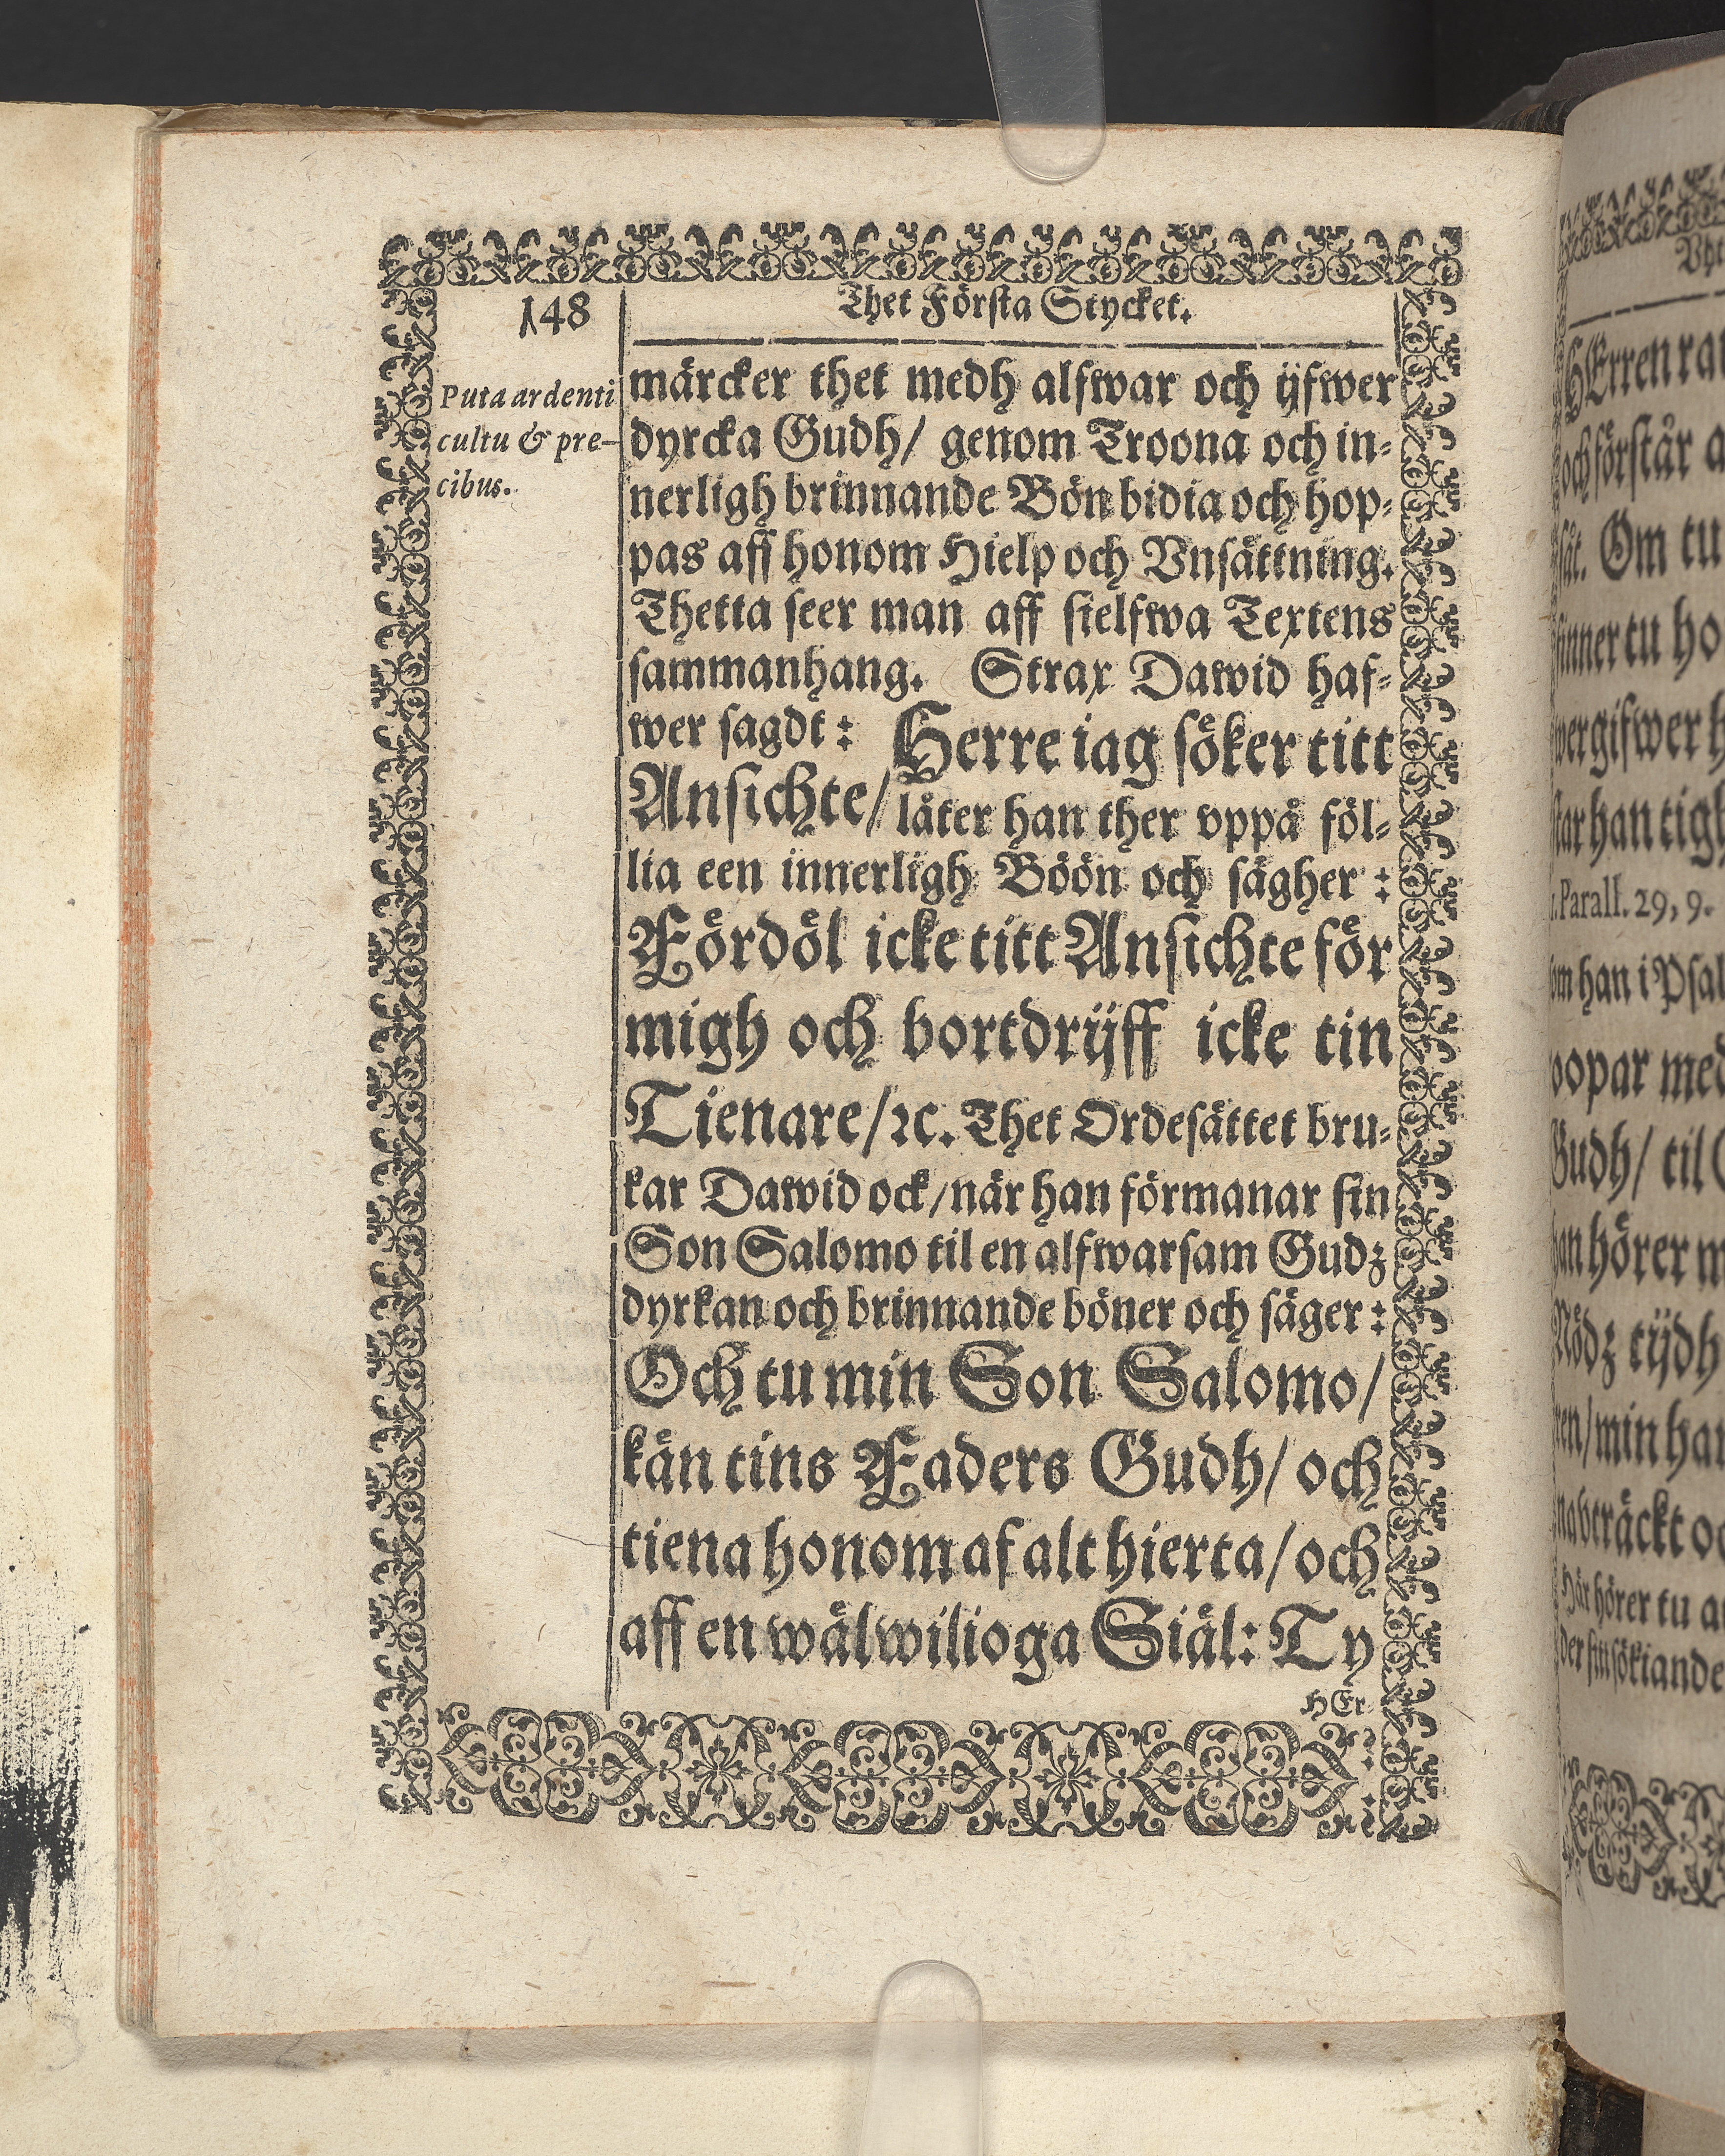 148
Thet Första Stycket.
Puta ardenti
cultu & pre-
cibus.
märcker thet medh alfwar och ijfwer
dyrcka Gudh/ genom Troona och in-
nerligh brinnande Bön bidia och hop-
pas aff honom Hielp och Vnsättning.
Thetta seer man aff sielfwa Textens
sammanhang. Strax Dawid haf-
wer sagdt: Herre iag söker titt
Ansichte/ låter han ther vppå föl-
lia een innerligh Böön och sägher:
Fördöl icke titt Ansichte för
migh och bortdrijff icke tin
Tienare/ꝛc. Thet Ordesättet bru-
kar Dawid ock/när han förmanar sin
Son Salomo til en alfwarsam Gudz
dyrkan och brinnande böner och säger:
Och tu min Son Salomo/
kän tins Faders Gudh/ och
tiena honom af alt hierta/ och
aff en wälwilioga Siäl: Ty
HEr-
HErren
och förstår
Om tu
finner tu
wergifwer
tar han tigh
Parall. 29, 9.
han i
Gudh/ til
hörer
Nödz tijdh
/min
hörer tu